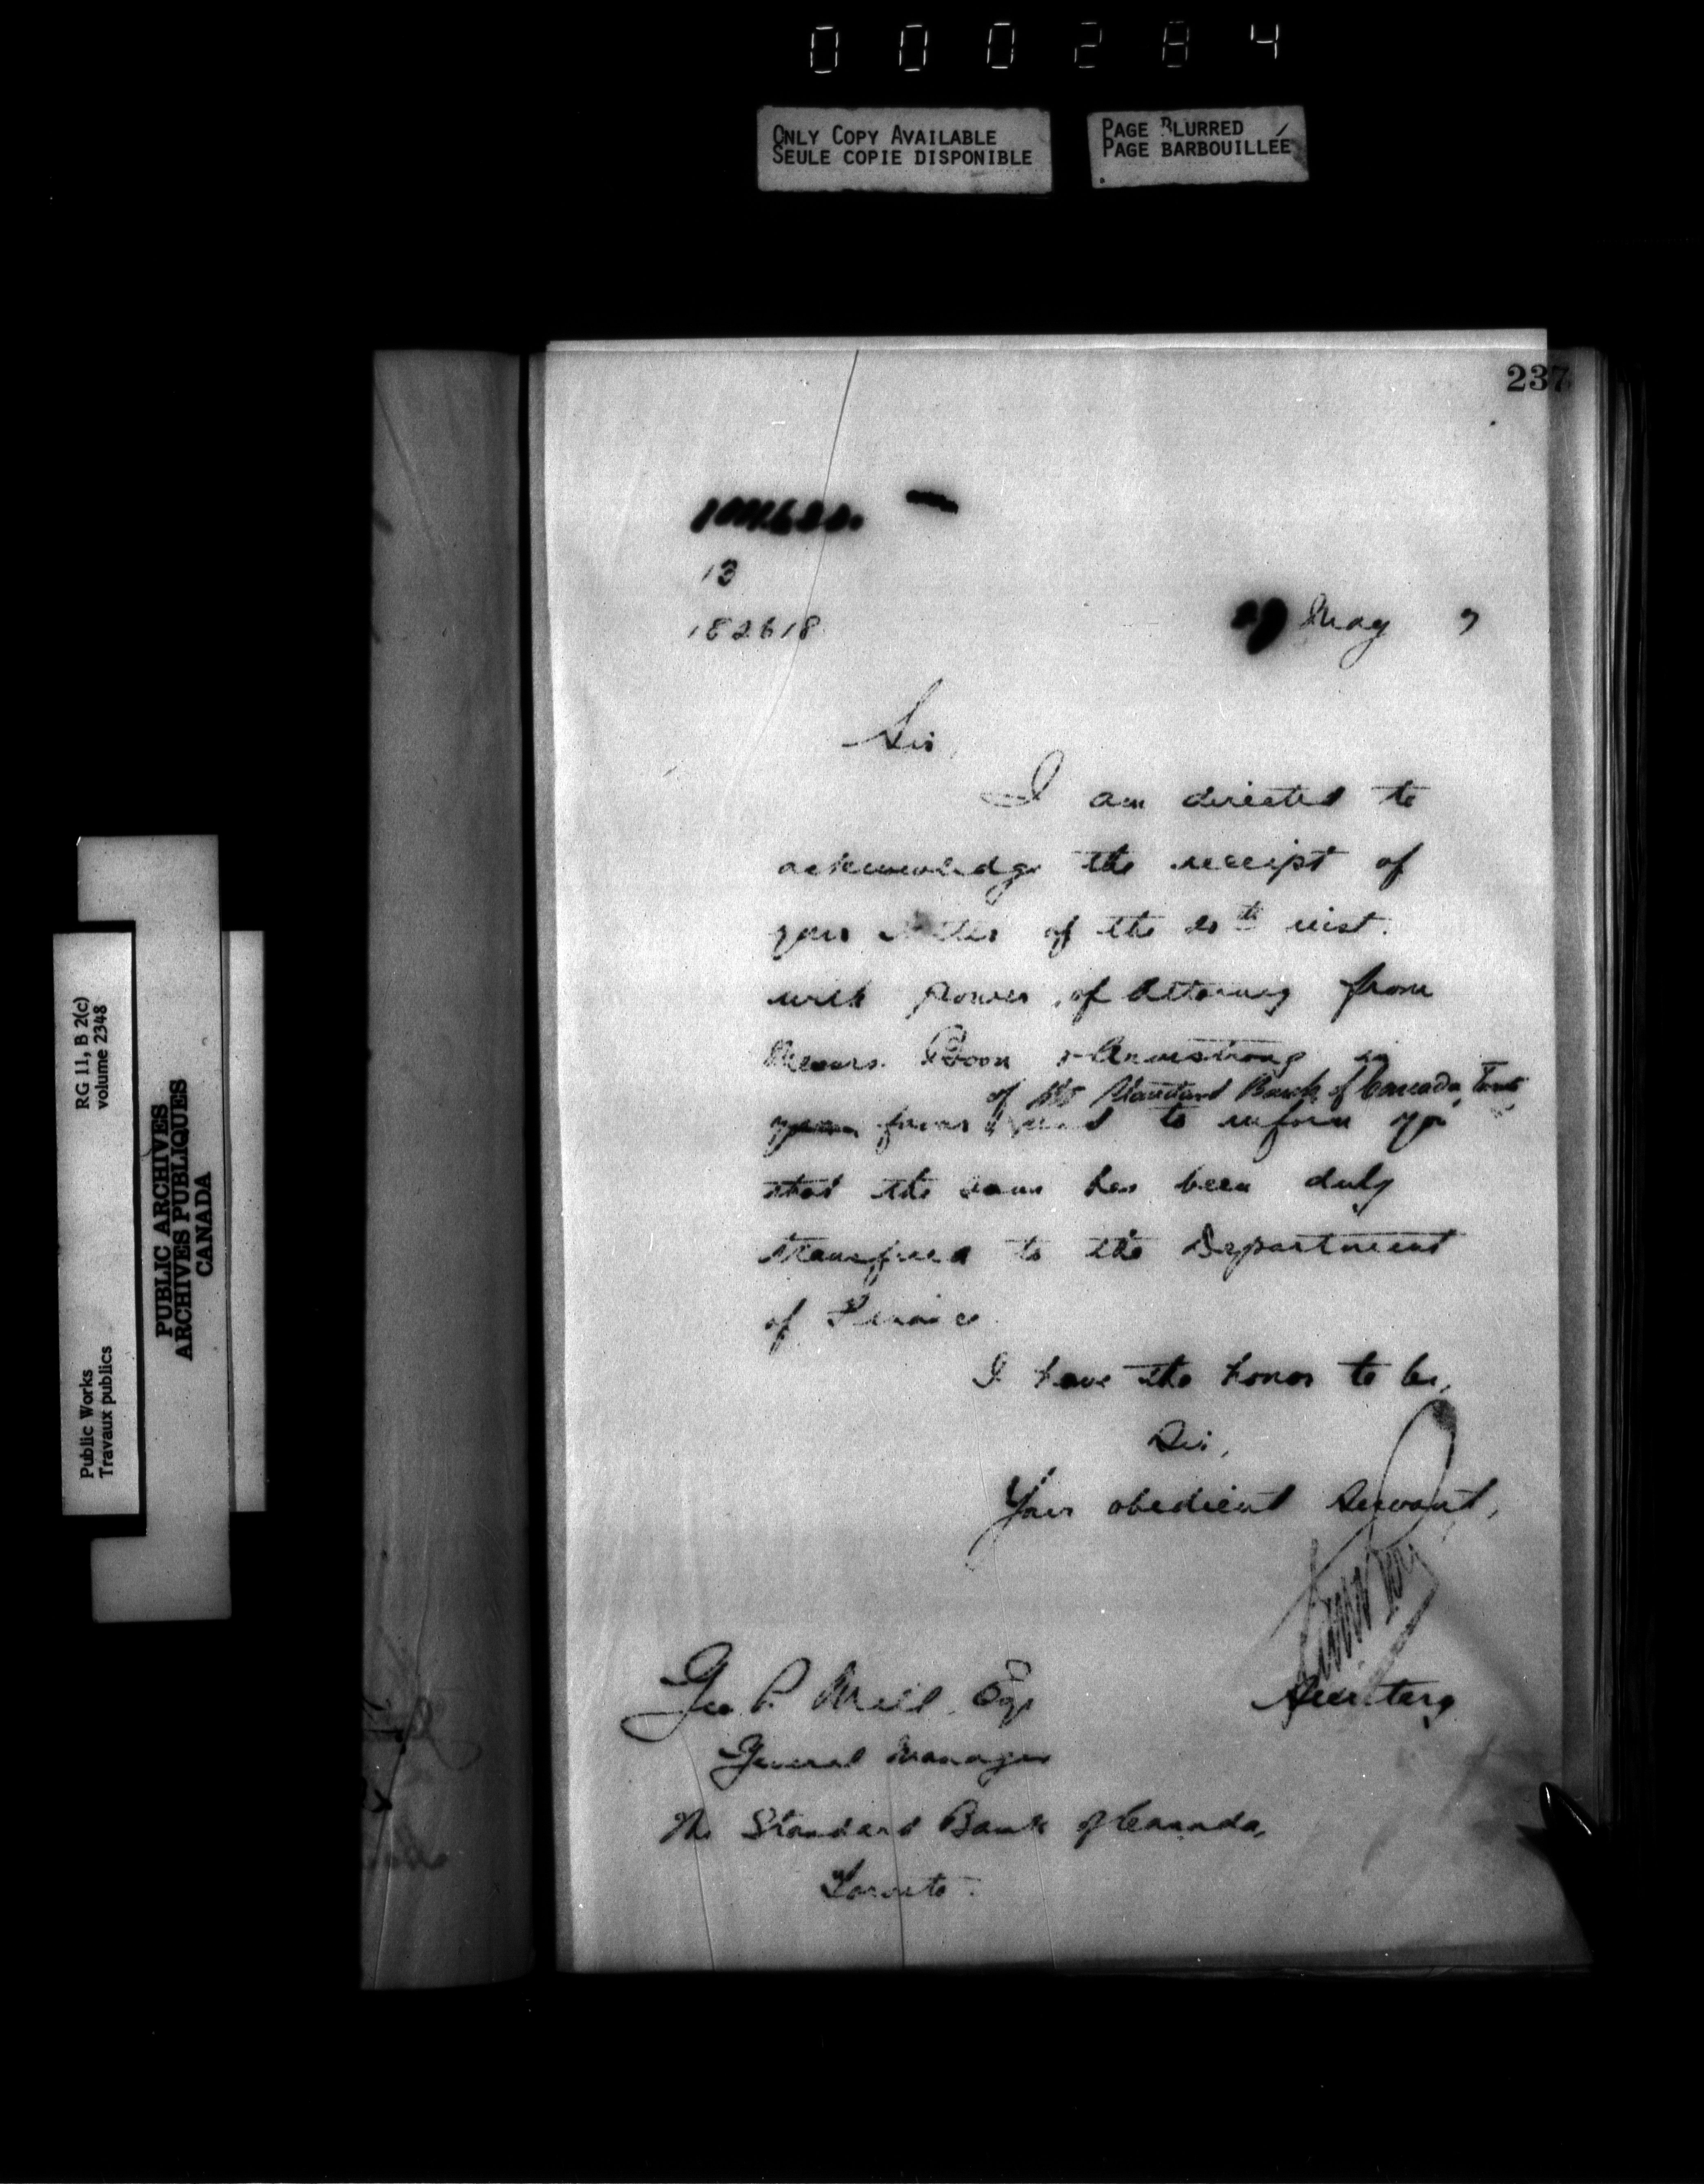 000284
ONLY COPY AVAILABLE
SEULE COPIE DISPONIBLE
PAGE BLURRED
PAGE BARBOUILLÉE
237
13
182618
27 May 7
Sir,
I am directed to
acknowledge the receipt of
your letter of the th inst.
with Power of Attorney from
Messrs. & Armstrong in
of the Standard Bank of Canada,
favor to inform you
that the same has been duly
transferred to the Department
of
I have the honor to be,
Sir,
Your obedient Servant,
Secretary
Geo P. Esq
General Manager
The Standard Bank of Canada,
Toronto.
RG 11, B 2(c)
volume 2348
Public Works
Travaux publics
PUBLIC ARCHIVES
ARCHIVES PUBLIQUES
CANADA